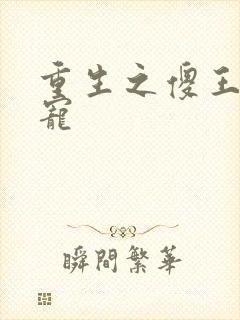 重生之傻王
寵
瞬間繁華